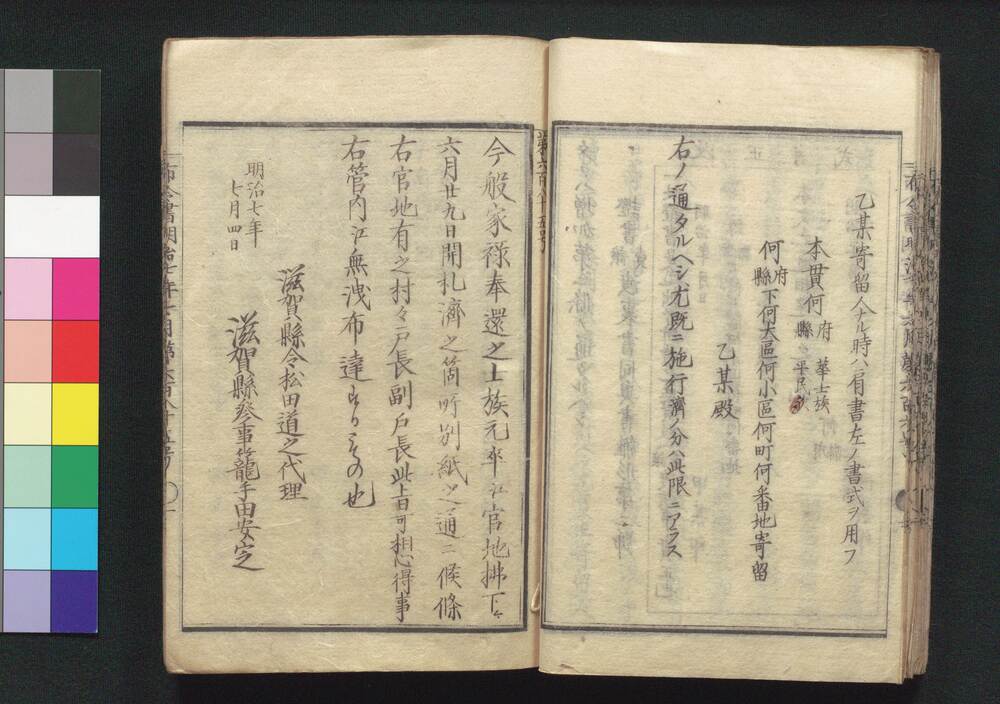 乙某寄留人ナル時ハ肩書左ノ書式ヲ用フ
本貫何府縣華士族平民
何府縣下何大區何小區何町何番地寄留
乙某殿
右ノ通タルヘシ尤既ニ施行濟ノ分ハ此限ニアラス
第六百八十五号
今般家禄奉還之士族元卒江官地拂下ケ
六月廿九日開札濟之箇所別紙之通ニ候條
右官地有之村々戸長副戸長此旨可相心得事
右管内江無洩布達するもの也
明治七年
七月四日
滋賀縣令松田道之代理
滋賀縣参事籠手田安定
布令書明治七年七月第六百八十五号